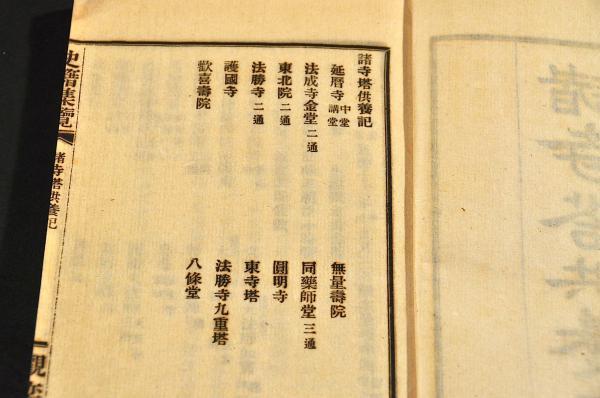 諸寺塔供養記
延曆寺 中堂 講堂
無量壽院
法成寺金堂 二通
同藥師堂 三通
東北院 二通
圓明寺
法勝寺 二通
東寺塔
護國寺
法勝寺九重塔
歡喜壽院
八條堂
史籍集覽
諸寺塔供養記
觀